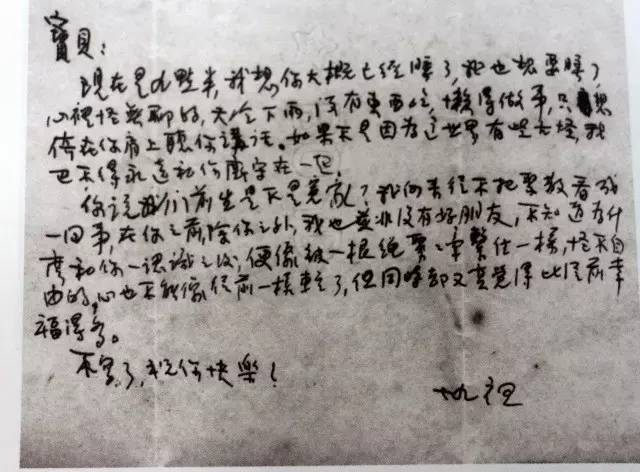 寶貝：
現在是九點半，我想你大概已經睡了，我也想要睡了
心裡怪無聊的，天冷下雨，沒有東西吃，懶得做事，只想
倚在你肩上聽你講話。如果不是因為这世界有些古怪，我
巴不得永遠和你厮守在一起。
你說我們前生是不是冤家？我向來從不把聚散看成
一回事，在你之前，除你之外，我也並非沒有好朋友，不知道為什
麼和你一認識之後，便像被一根繩緊緊牽繫住一樣，怪不自
由的，心也不能像從前一樣輕了，但同時却又真覺得比從前幸
福得多。
不寫了，祝你快樂！